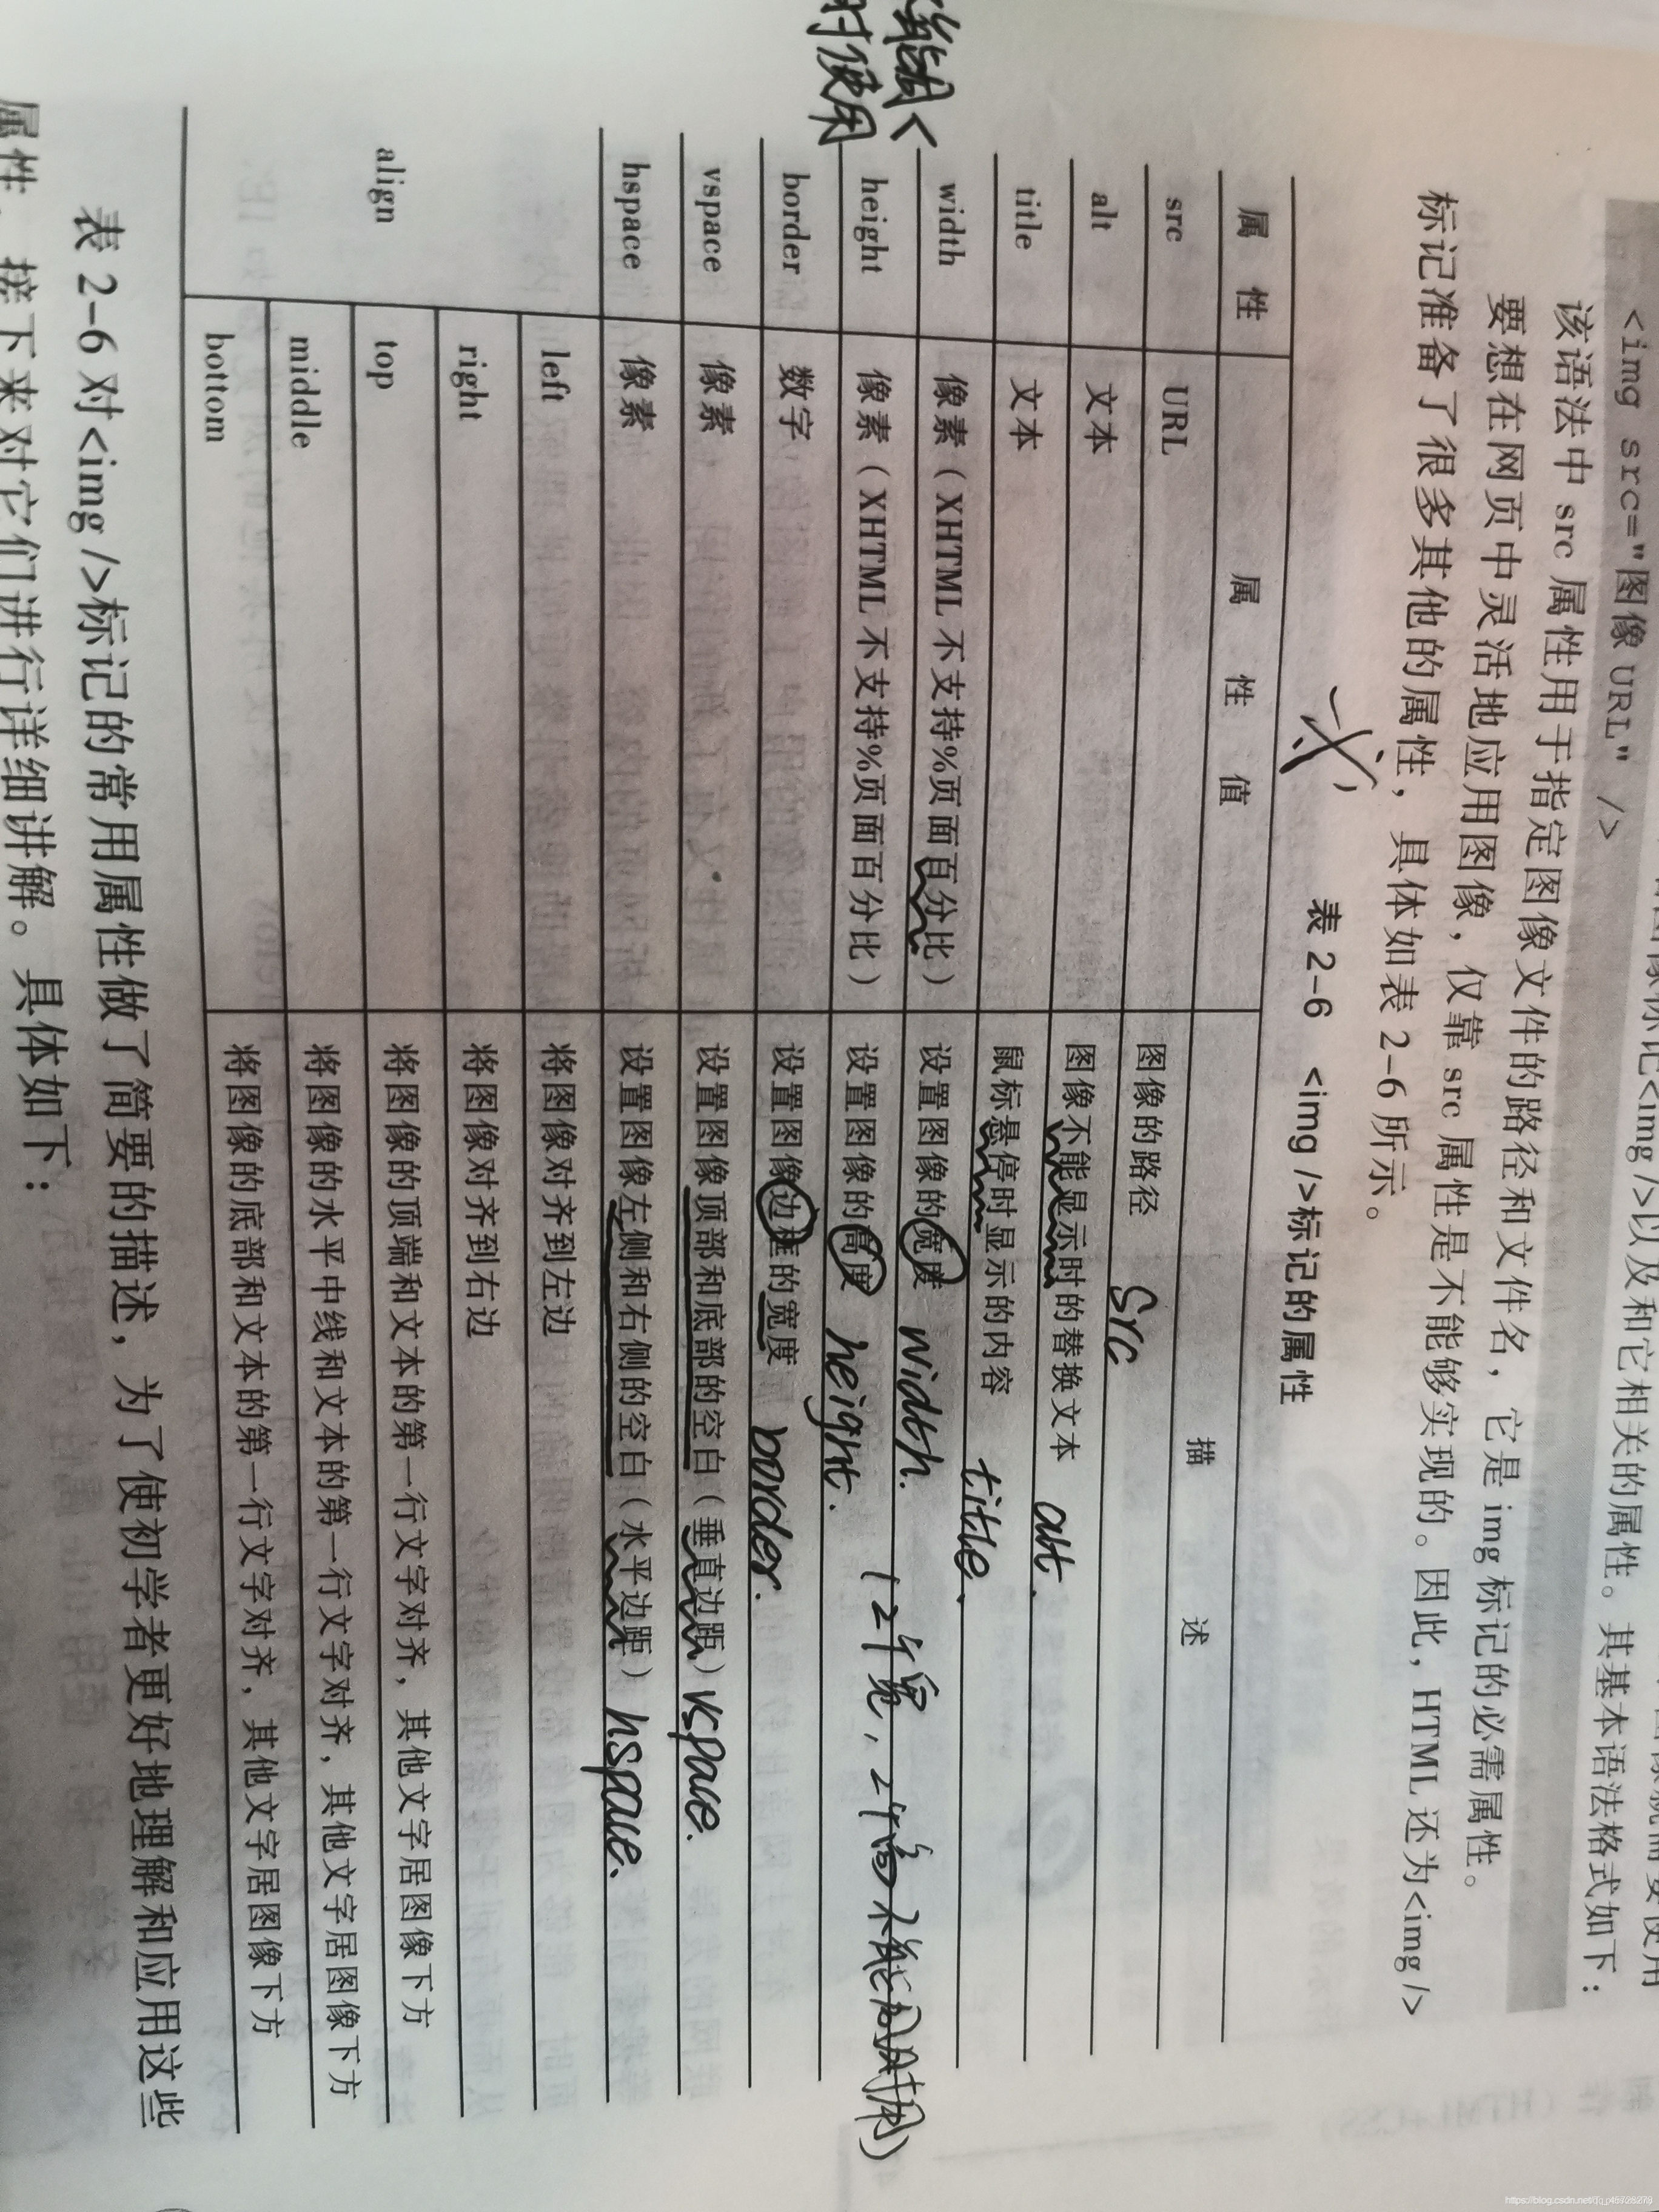 标记<img />以及和它相关的属性。其基本语法格式如下：
<img src="图像 URL" />
该语法中 src 属性用于指定图像文件的路径和文件名，它是 img 标记的必需属性。
要想在网页中灵活地应用图像，仅靠 src 属性是不能够实现的。因此，HTML 还为<img />
标记准备了很多其他的属性，具体如表 2-6 所示。
表 2-6 <img />标记的属性
属 性 属 性 值 描 述
src URL 图像的路径 src
alt 文本 图像不能显示时的替换文本 alt.
title 文本 鼠标悬停时显示的内容 title.
width 像素（XHTML 不支持%页面百分比） 设置图像的宽度 width.
height 像素（XHTML 不支持%页面百分比） 设置图像的高度 height.
时使用
border 数字 设置图像边框的宽度 border.
vspace 像素 设置图像顶部和底部的空白（垂直边距） vspace.
hspace 像素 设置图像左侧和右侧的空白（水平边距） hspace.
align left 将图像对齐到左边
right 将图像对齐到右边
top 将图像的顶端和文本的第一行文字对齐，其他文字居图像下方
middle 将图像的水平中线和文本的第一行文字对齐，其他文字居图像下方
bottom 将图像的底部和文本的第一行文字对齐，其他文字居图像下方
表 2-6 对<img />标记的常用属性做了简要的描述，为了使初学者更好地理解和应用这些
属性，接下来对它们进行详细讲解。具体如下：